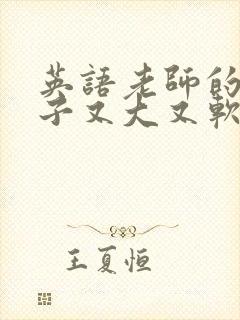 英語老師的
子又大又軟
王夏恒